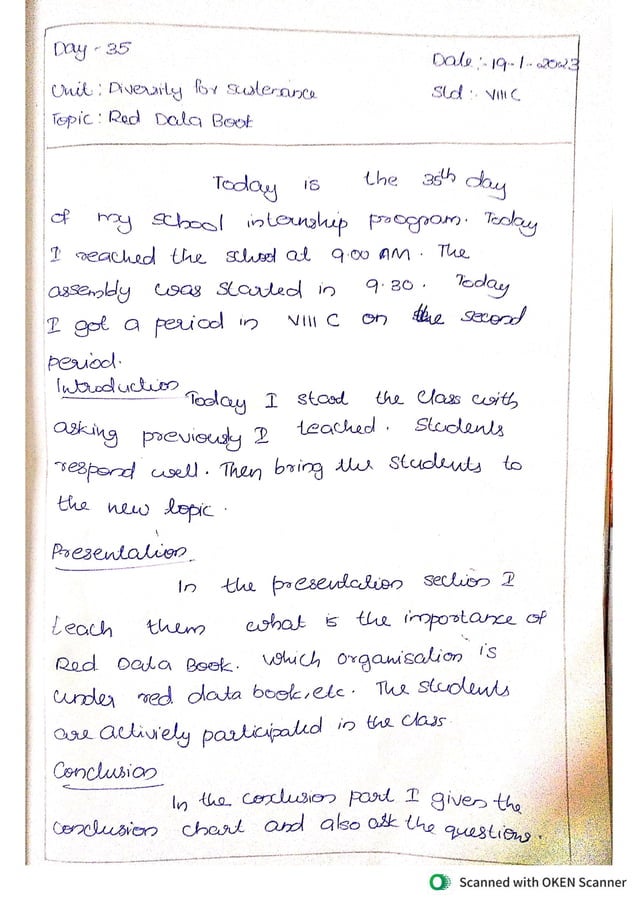 Day - 35
Date :- 19-1-2023
Unit : Diversity for sustenance
Std :- VIII C
Topic : Red Data Book
Today is the 35th day
of my school internship program. Today
I reached the school at 9.00 AM. The
assembly was started in 9.30. Today
I got a period in VIII C on the second
period.
Introduction
Today I stard the class with
asking previously I teached. Students
respond well. Then bring the students to
the new topic.
Presentation
In the presentation section I
teach them what is the importance of
Red Data Book. Which organisation is
under red data book, etc. The students
are activiely participated in the class.
Conclusion
In the conclusion part I given the
conclusion chart and also ask the questions.
Scanned with OKEN Scanner